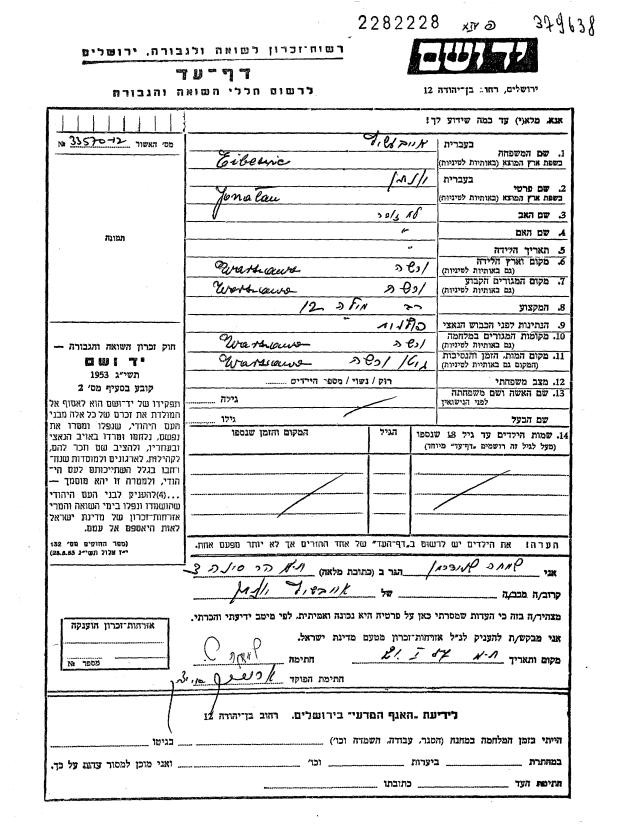 2282228 379638
יד ושם
ירושלים, רחוב בן-יהודה 12
רשות-זכרון לשואה ולגבורה, ירושלים
דף-עד
לרשום חללי השואה והגבורה
אנא, מלא(י) עד כמה שידוע לך!
מס׳ האשור
№ 33570-12
תמונה
1. שם המשפחה בעברית אייבשיץ
בשפת ארץ המוצא (באותיות לטיניות)
2. שם פרטי בעברית יונתן
בשפת ארץ המוצא (באותיות לטיניות) Jonatan
3. שם האב
4. שם האם "
5. תאריך הלידה "
6. מקום וארץ הלידה ורשה Warszawa
(גם באותיות לטיניות)
7. מקום המגורים הקבוע ורשה Warszawa
(גם באותיות לטיניות)
8. המקצוע רב
9. הנתינות לפני הכבוש הנאצי פולנית
10. מקומות המגורים במלחמה ורשה Warszawa
(גם באותיות לטיניות)
11. מקום המות, הזמן והנסיבות גיטו ורשה Warszawa
(המקום גם באותיות לטיניות)
12. מצב משפחתי רוק / נשוי / מספר הילדים
13. שם האשה ושם משפחתה לפני הנישואין גילה
שם הבעל גילו
14. שמות הילדים עד גיל 18 שנספו הגיל המקום והזמן שנספו
(מעל לגיל זה רושמים „דף-עד״ מיוחד)
הערה: את הילדים יש לרשום ב„דף-העד״ של אחד ההורים אך לא יותר מפעם אחת.
חוק זכרון השואה והגבורה —
יד ושם
תשי״ג 1953
קובע בסעיף מס׳ 2
תפקידו של יד-ושם הוא לאסוף אל
המולדת את זכרם של כל אלה מבני
העם היהודי, שנפלו ומסרו את
נפשם, נלחמו ומרדו באויב הנאצי
ובעוזריו, ולהציב שם וזכר להם,
לקהילות, לארגונים ולמוסדות שנח-
רבו בגלל השתייכותם לעם הי-
הודי, ולמטרה זו יהא מוסמך —
...(4) להעניק לבני העם היהודי
שהושמדו ונפלו בימי השואה והמרי
אזרחות-זכרון של מדינת ישראל
לאות היאספם אל עמם.
(ספר החוקים מס׳ 132
י״ז אלול תשי״ג 28.8.53)
אני שמחה הגר ב (כתובת מלאה) ת״א
קרוב/ה מכר/ה של אייבשיץ יונתן
מצהיר/ה בזה כי העדות שמסרתי כאן על פרטיה היא נכונה ואמיתית, לפי מיטב ידיעתי והכרתי.
אני מבקש/ת להעניק לנ״ל אזרחות-זכרון מטעם מדינת ישראל.
מקום ותאריך ת״א חתימה
חתימת הפוקד
אזרחות-זכרון הוענקה
מספר №
לידיעת „האגף המדעי״ בירושלים, רחוב בן-יהודה 12
הייתי בזמן המלחמה במחנה (הסגר, עבודה, השמדה וכו׳) בגיטו
במחתרת ביערות וכו׳ ואני מוכן למסור עדות על כך.
חתימת העד כתובתו